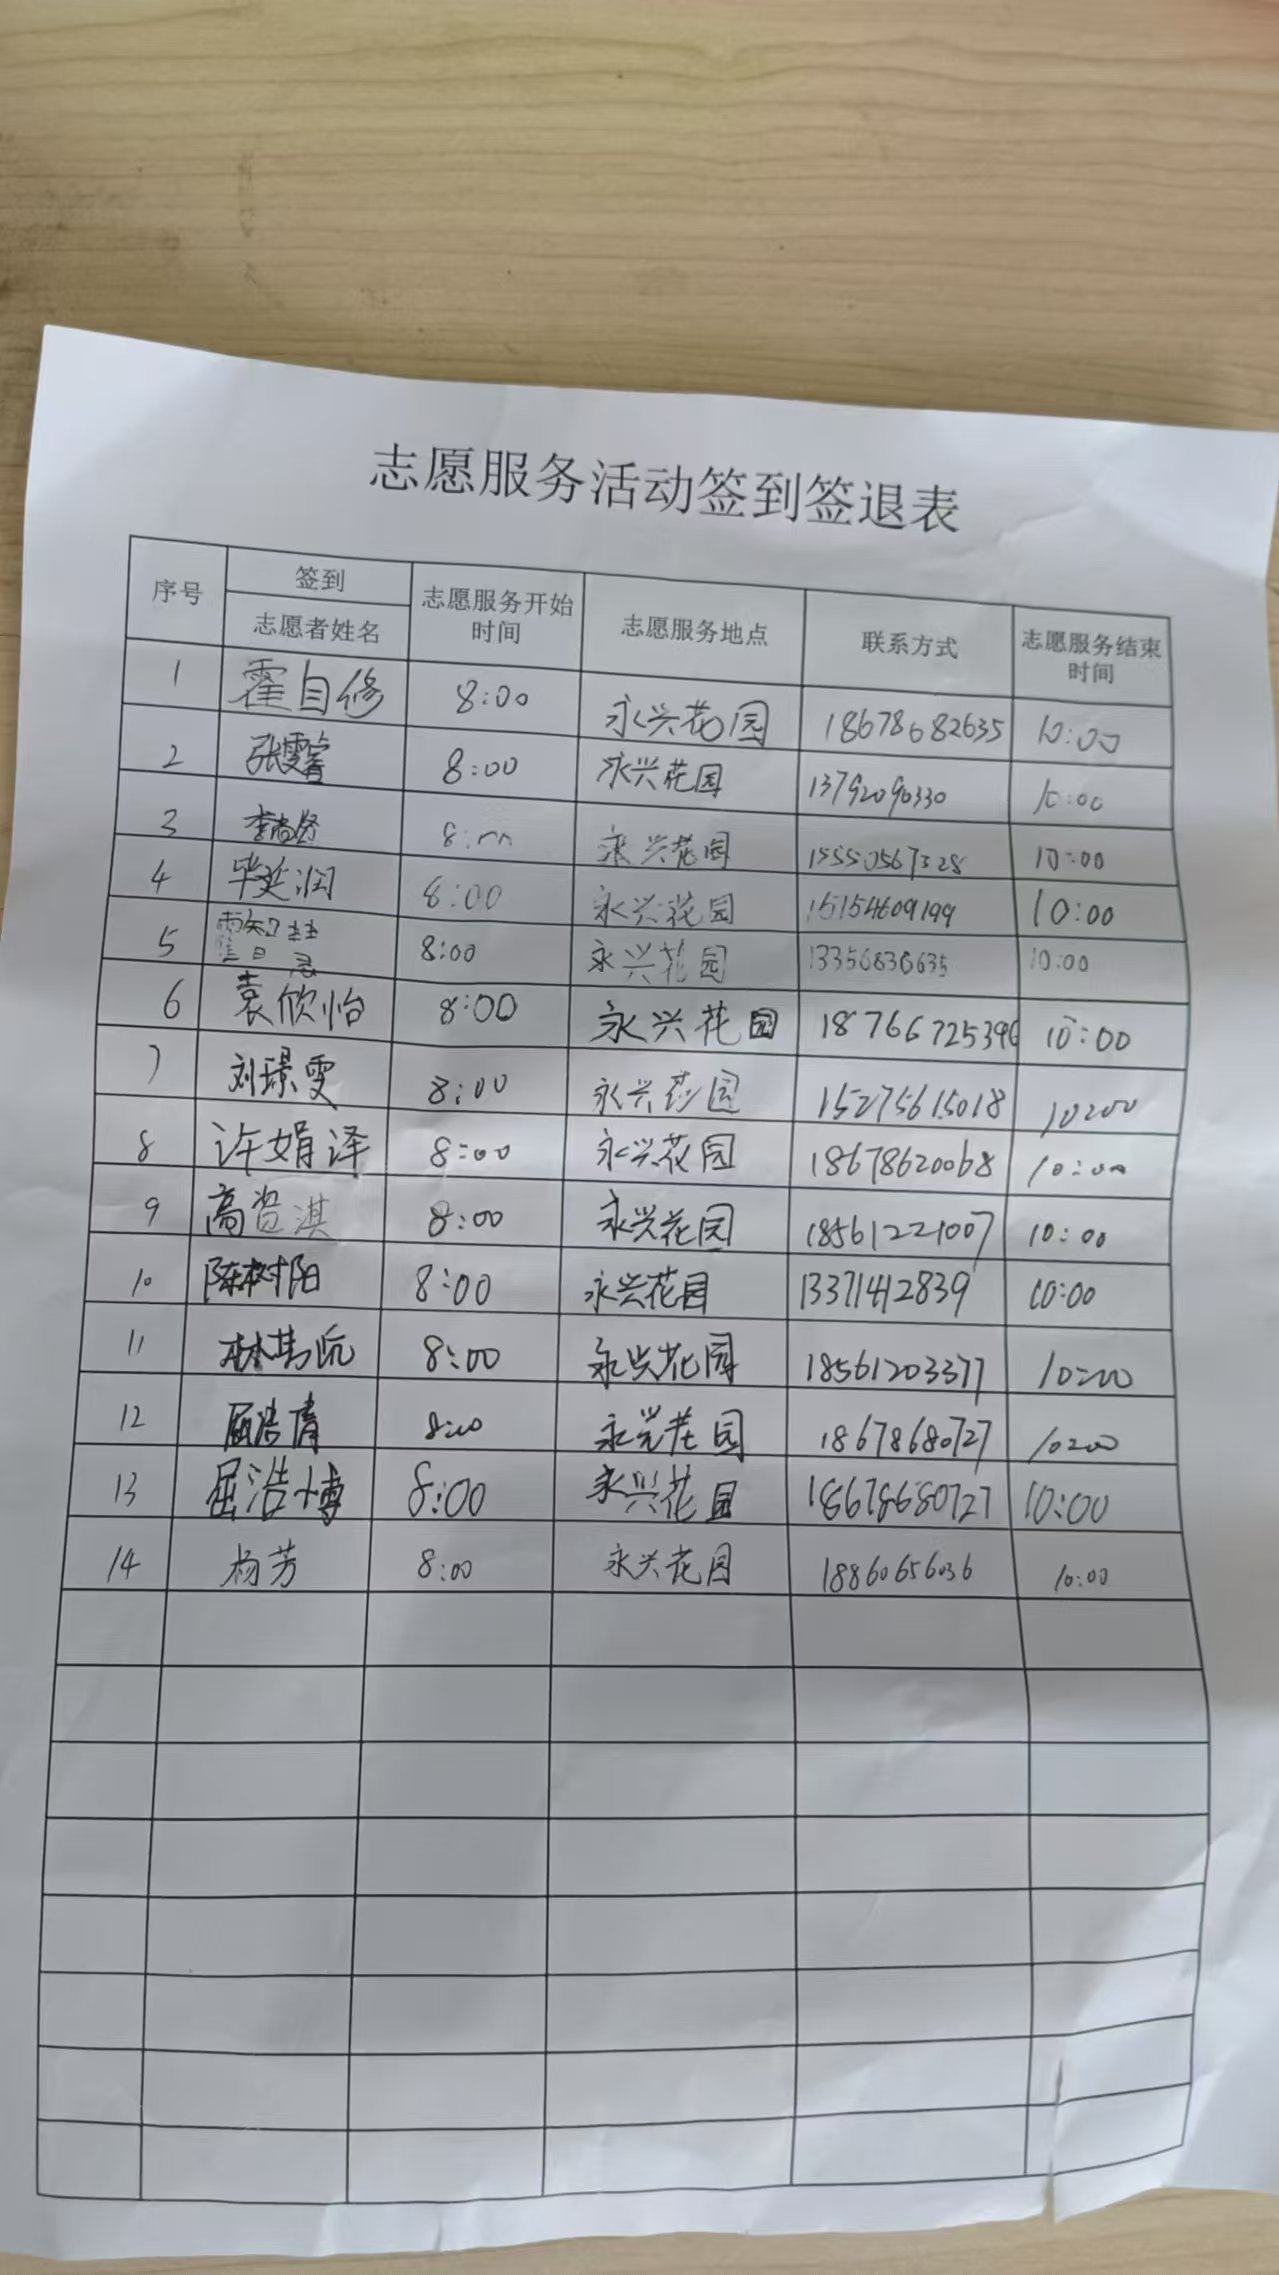 志愿服务活动签到签退表
序号 签到 志愿者姓名 志愿服务开始时间 志愿服务地点 联系方式 志愿服务结束时间
1 霍自修 8:00 永兴花园 18678682635 10:00
2 张雯 8:00 永兴花园 13792090330 10:00
3 李 8:00 永兴花园 15550567328 10:00
4 毕延润 8:00 永兴花园 15154609199 10:00
5 霍智慧 8:00 永兴花园 13356836635 10:00
6 袁欣怡 8:00 永兴花园 1876672539 10:00
7 刘璟雯 8:00 永兴花园 15275615018 10:00
8 许娟泽 8:00 永兴花园 18678620068 10:00
9 高资淇 8:00 永兴花园 18561221007 10:00
10 陈树阳 8:00 永兴花园 13371412839 10:00
11 林 8:00 永兴花园 18561203377 10:00
12 屈浩 8:00 永兴花园 18678680727 10:00
13 屈浩博 8:00 永兴花园 18678680727 10:00
14 杨芳 8:00 永兴花园 18860656036 10:00